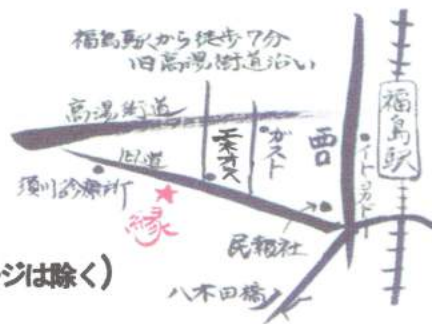 福島駅から徒歩7分
旧高湯街道沿い
高湯街道
旧道
須川診療所
縁
エネオス
ガスト
西口
イトーヨーカドー
福島駅
民報社
八木田橋
ジは除く)